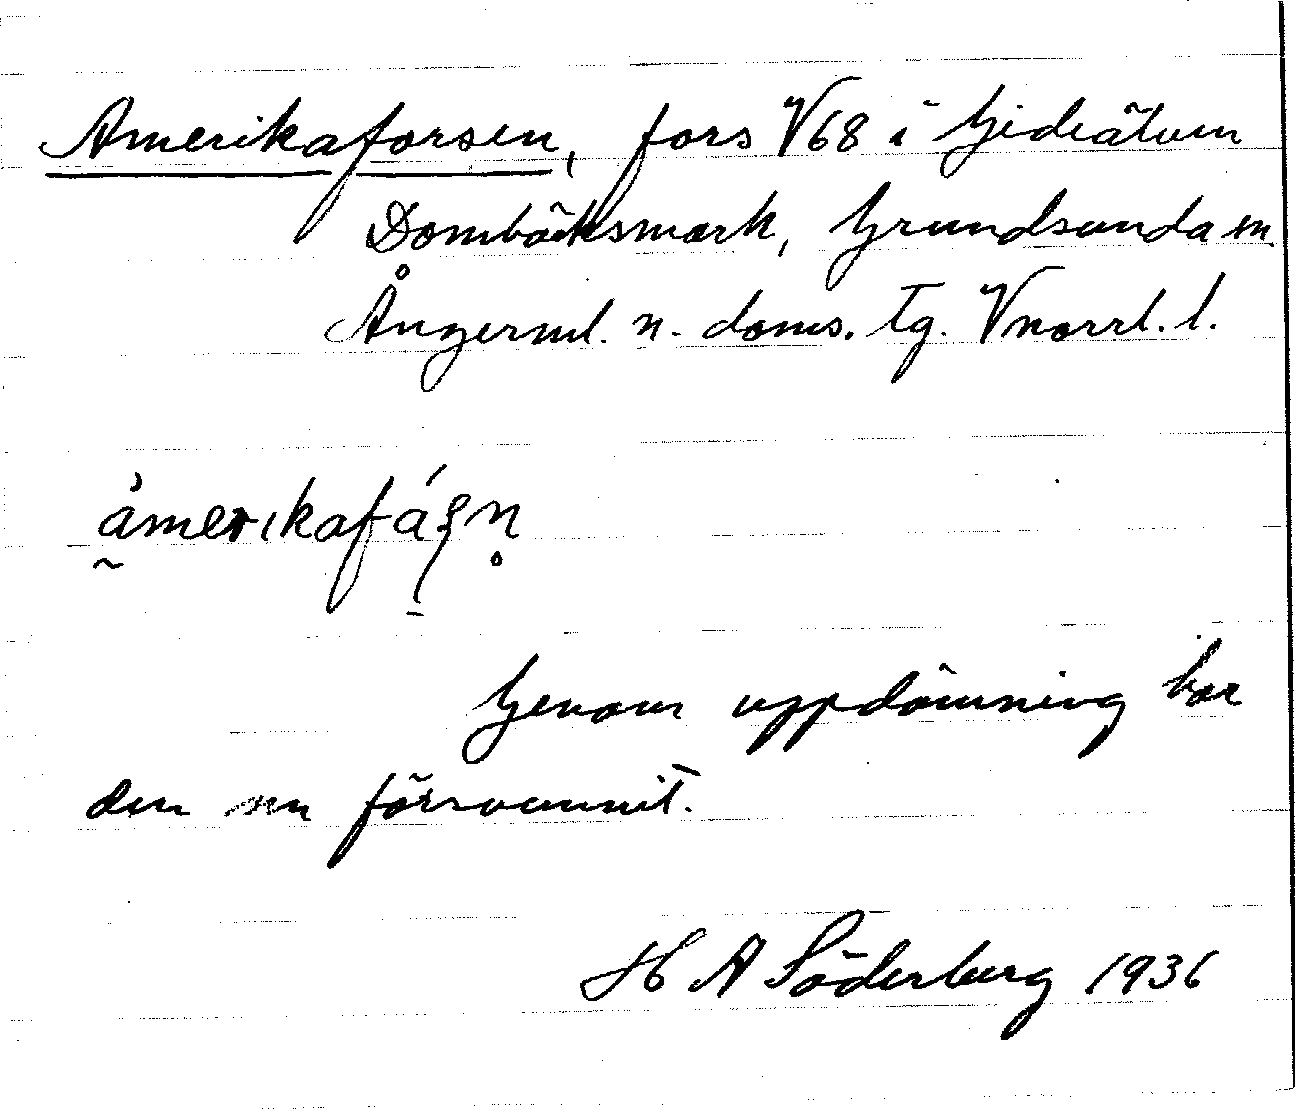 Amerikaforsen, fors V68 i Gideälven
Dombäcksmark, Grundsunda sn
Ångerml. n. doms. tg. Vnorrl. l.
Genom uppdämning har
den nu försvunnit.
H A Söderberg 1936